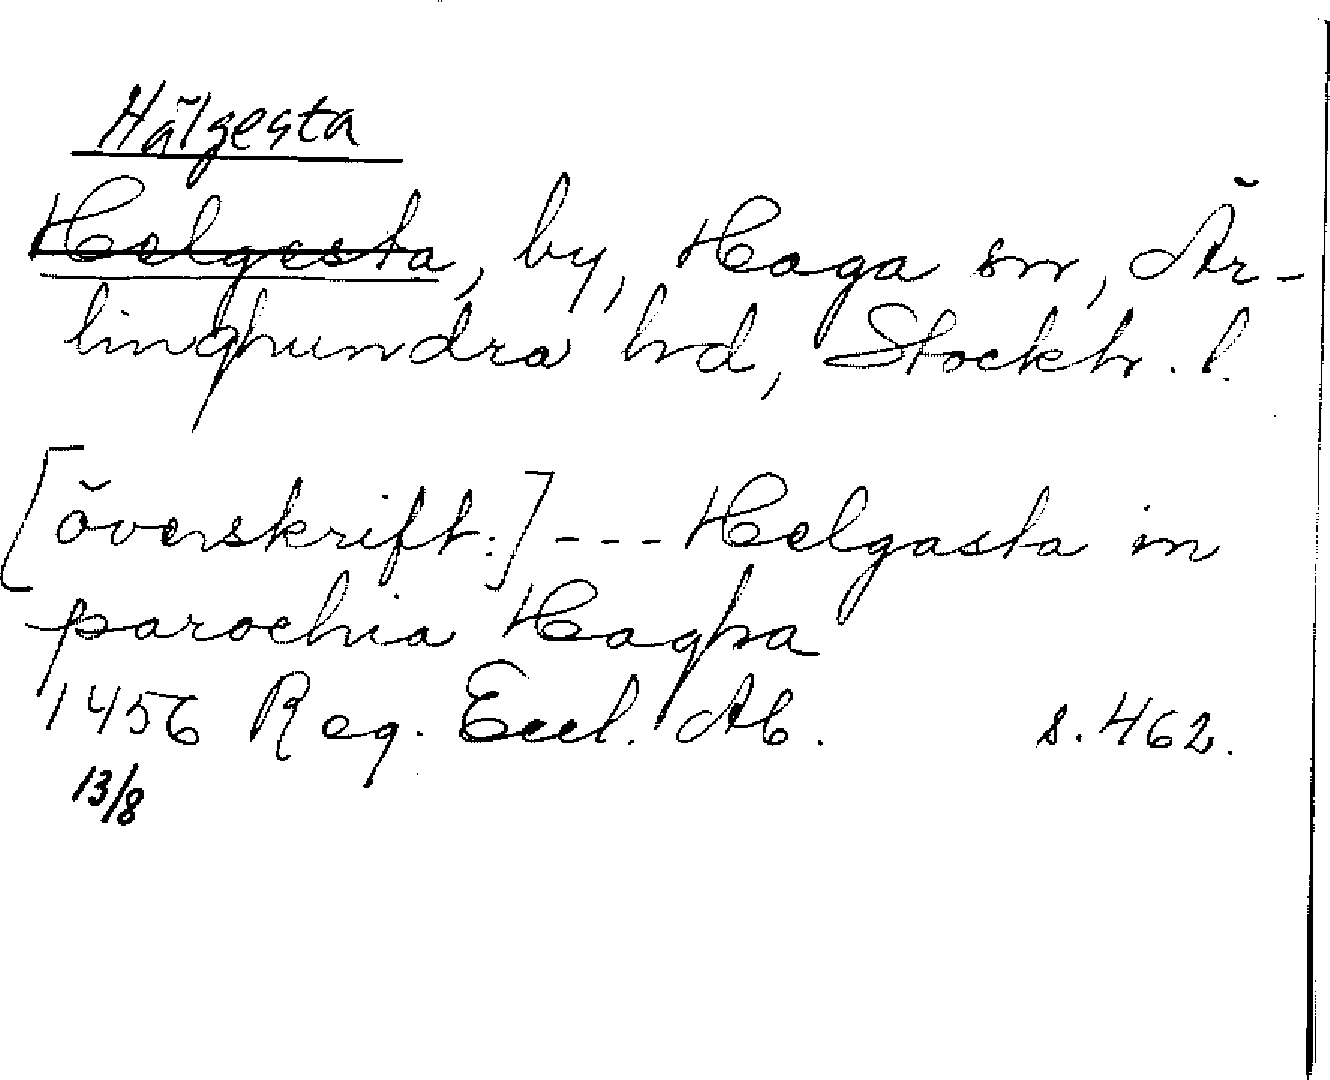 Hälgesta
Helgesta, by, Haga sn, Är-
linghundra hd, Stockh. l.
[överskrift:] --- Helgasta in
parochia Hagha
1456 Reg. Eccl. Ab. s. 462.
13/8